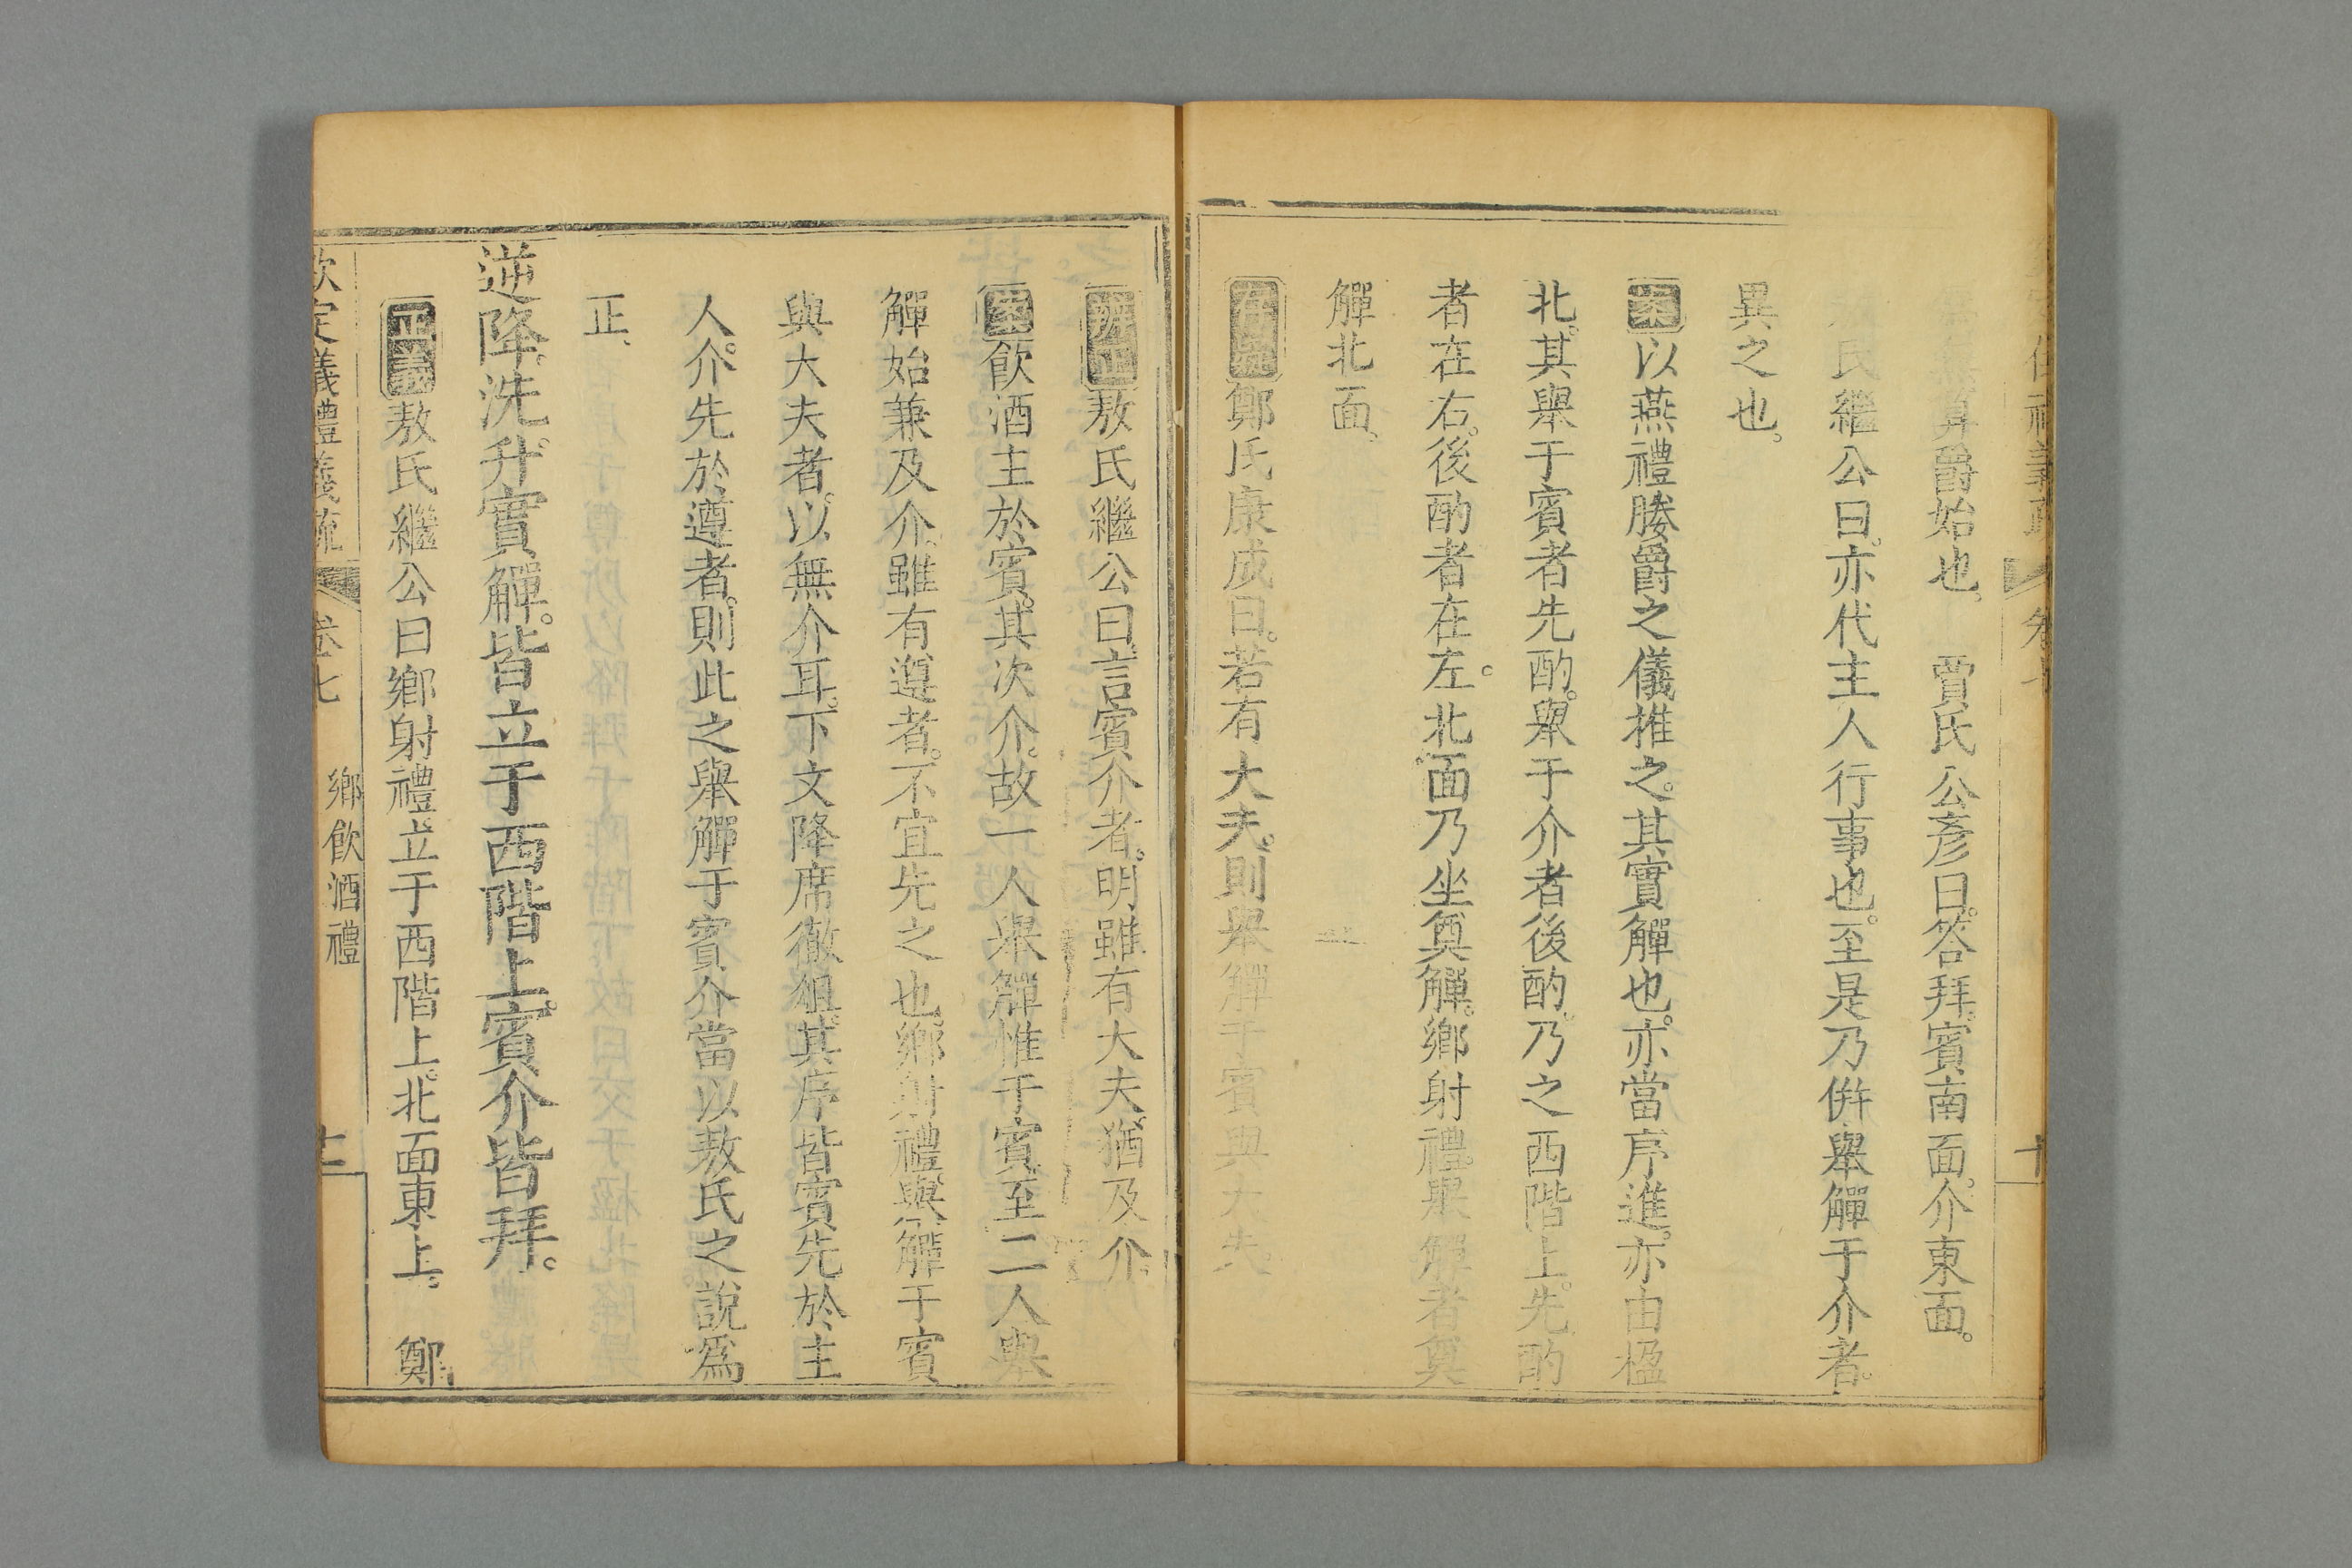 算爵始也。　賈氏公彥曰。答拜。賓南面。介東面。
氏繼公曰。亦代主人行事也。至是乃併舉觶于介者。
異之也。
案以燕禮媵爵之儀推之。其實觶也。亦當序進。亦由楹
北。其舉于賓者先酌。舉于介者後酌。乃之西階上。先酌
者在右。後酌者在左。北面乃坐奠觶。鄉射禮。舉觶者奠
觶北面。
存疑鄭氏康成曰。若有大夫。則舉觶于賓與大夫。
辨正敖氏繼公曰。言賓介者。明雖有大夫。猶及介。
案飲酒主於賓。其次介。故一人舉觶惟于賓。至二人舉
觶始兼及介。雖有遵者。不宜先之也。鄉射禮。與觶于賓
與大夫者。以無介耳。下文降席徹俎。其序皆賓先於主
人。介先於遵者。則此之舉觶于賓介當以敖氏之說爲
正。
逆降。洗。升實觶。皆立于西階上。賓介皆拜。
正義敖氏繼公曰鄉射禮。立于西階上。北面東上。　鄭
欽定儀禮義疏　卷七　鄉飲酒禮　十二